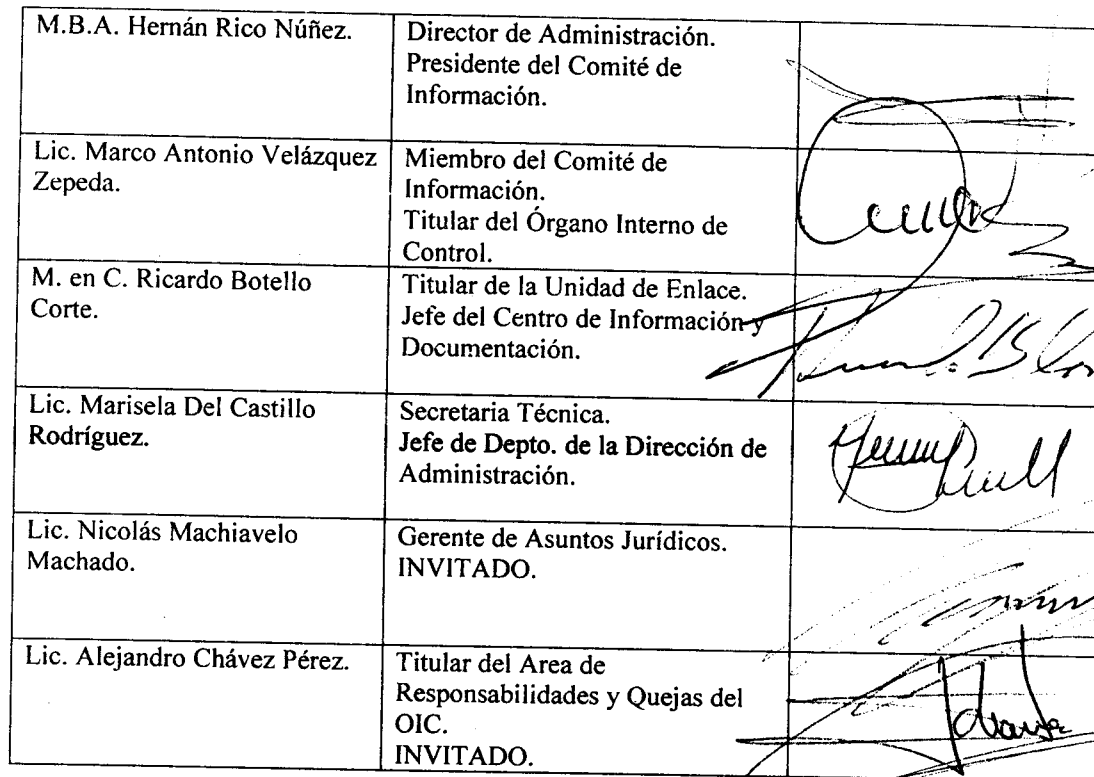 M.B.A. Hernán Rico Núñez.
Director de Administración.
Presidente del Comité de
Información.
Lic. Marco Antonio Velázquez
Zepeda.
Miembro del Comité de
Información.
Titular del Órgano Interno de
Control.
M. en C. Ricardo Botello
Corte.
Titular de la Unidad de Enlace.
Jefe del Centro de Información y
Documentación.
Lic. Marisela Del Castillo
Rodríguez.
Secretaria Técnica.
Jefe de Depto. de la Dirección de
Administración.
Lic. Nicolás Machiavelo
Machado.
Gerente de Asuntos Jurídicos.
INVITADO.
Lic. Alejandro Chávez Pérez.
Titular del Area de
Responsabilidades y Quejas del
OIC.
INVITADO.